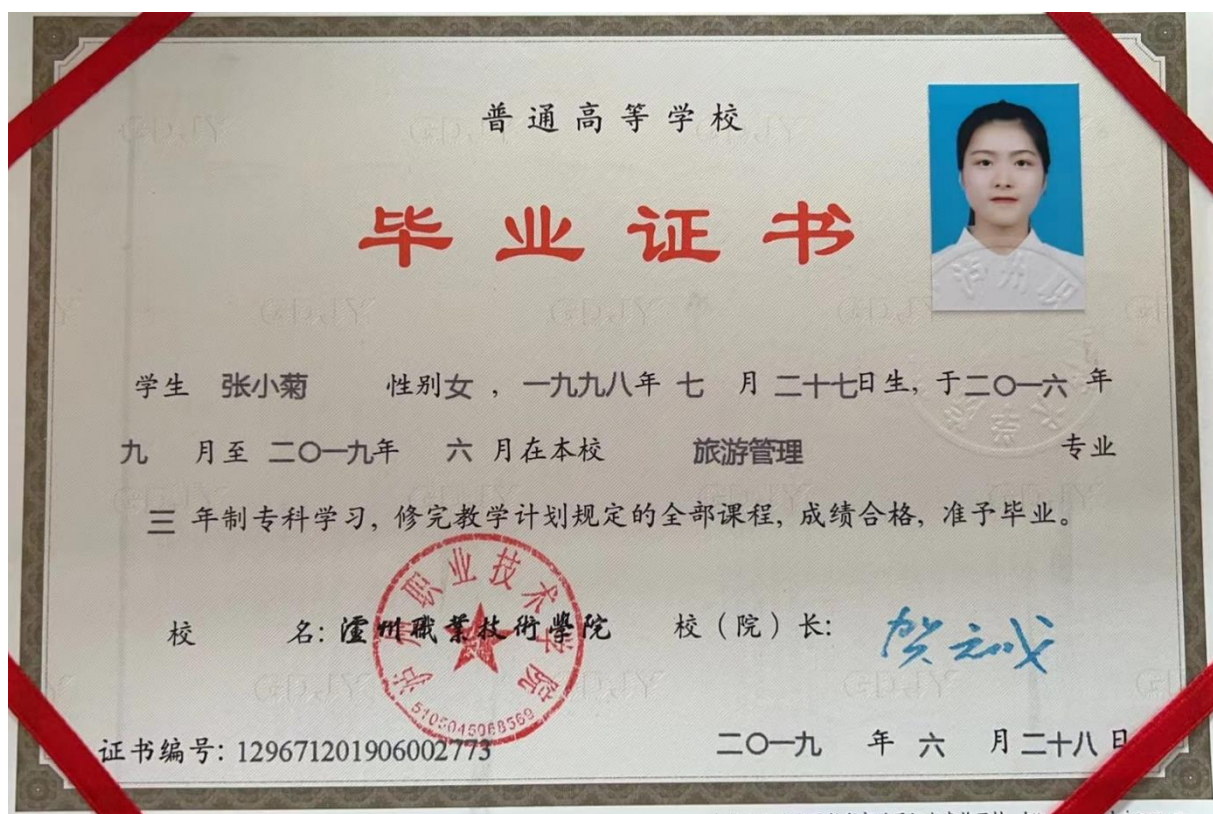 普通高等学校
毕业证书
学生 张小菊 性别女，一九九八年 七 月 二十七日生，于二〇一六 年
九 月至 二〇一九年 六 月在本校 旅游管理 专业
三 年制专科学习，修完教学计划规定的全部课程，成绩合格，准予毕业。
校 名：瀘州職業技術學院 校（院）长：贺元成
泸州职业技术学院
5105045068569
证书编号：129671201906002773
二〇一九 年 六 月 二十八 日